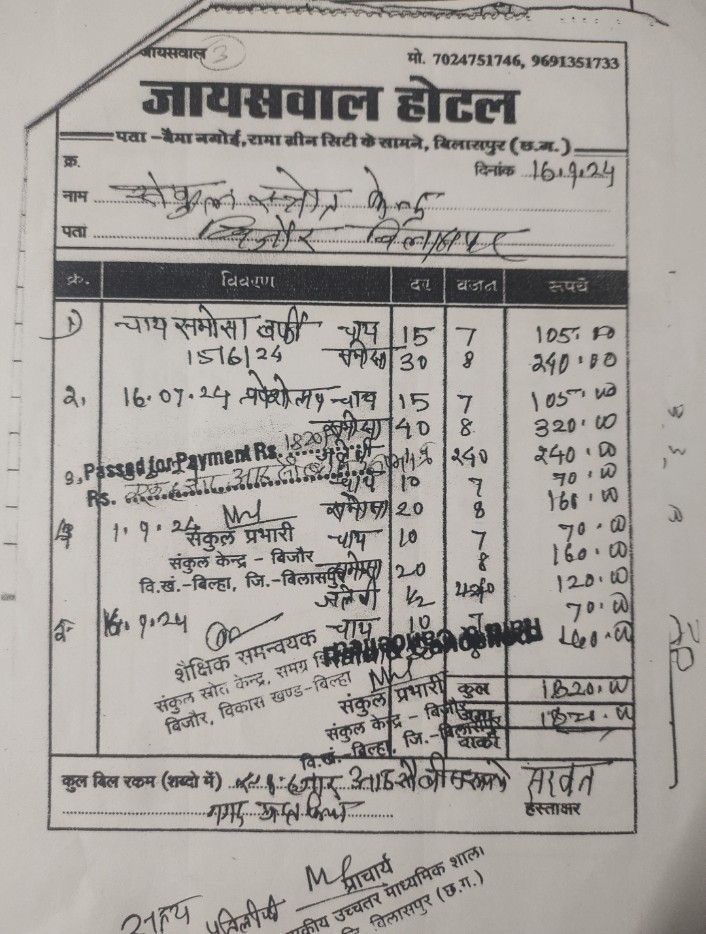 जायसवाल 3
मो. 7024751746, 9691351733
जायसवाल होटल
पता - बैमा नगोई, रामा ग्रीन सिटी के सामने, बिलासपुर (छ.ग.)
क्र. दिनांक 16.9.24
नाम संकुल स्त्रोत केन्द्र
पता बिजौर बिलासपुर
क्र. विवरण दर वजन रूपये
1) चाय समोसा बर्फी चाय 15 7 105.00
15/6/24 समोसा 30 8 240.00
2. 16.07.24 चाय 15 7 105.00
समोसा 40 8 320.00
3, Passed for Payment Rs. 1820/- जलेबी 240 240.00
Rs. चाय 10 7 70.00
समोसा 20 8 160.00
1.9.24 चाय 10 7 70.00
संकुल प्रभारी
संकुल केन्द्र - बिजौर समोसा 20 8 160.00
वि.खं.-बिल्हा, जि.-बिलासपुर जलेबी 1/2 240 120.00
16.9.24 चाय 10 7 70.00
8 160.00
शैक्षिक समन्वयक
संकुल स्रोत केन्द्र, समग्र
बिजौर, विकास खण्ड-बिल्हा
संकुल प्रभारी कुल 1820.00
संकुल केन्द्र - बिजौर जमा 1820.00
वि.खं. बिल्हा, जि.-बिलासपुर बाकी
कुल बिल रकम (शब्दो में) एक हजार आठ सौ बीस रूपये
नगद प्राप्त किया हस्ताक्षर
प्राचार्य
उच्चतर माध्यमिक शाला
बिलासपुर (छ.ग.)